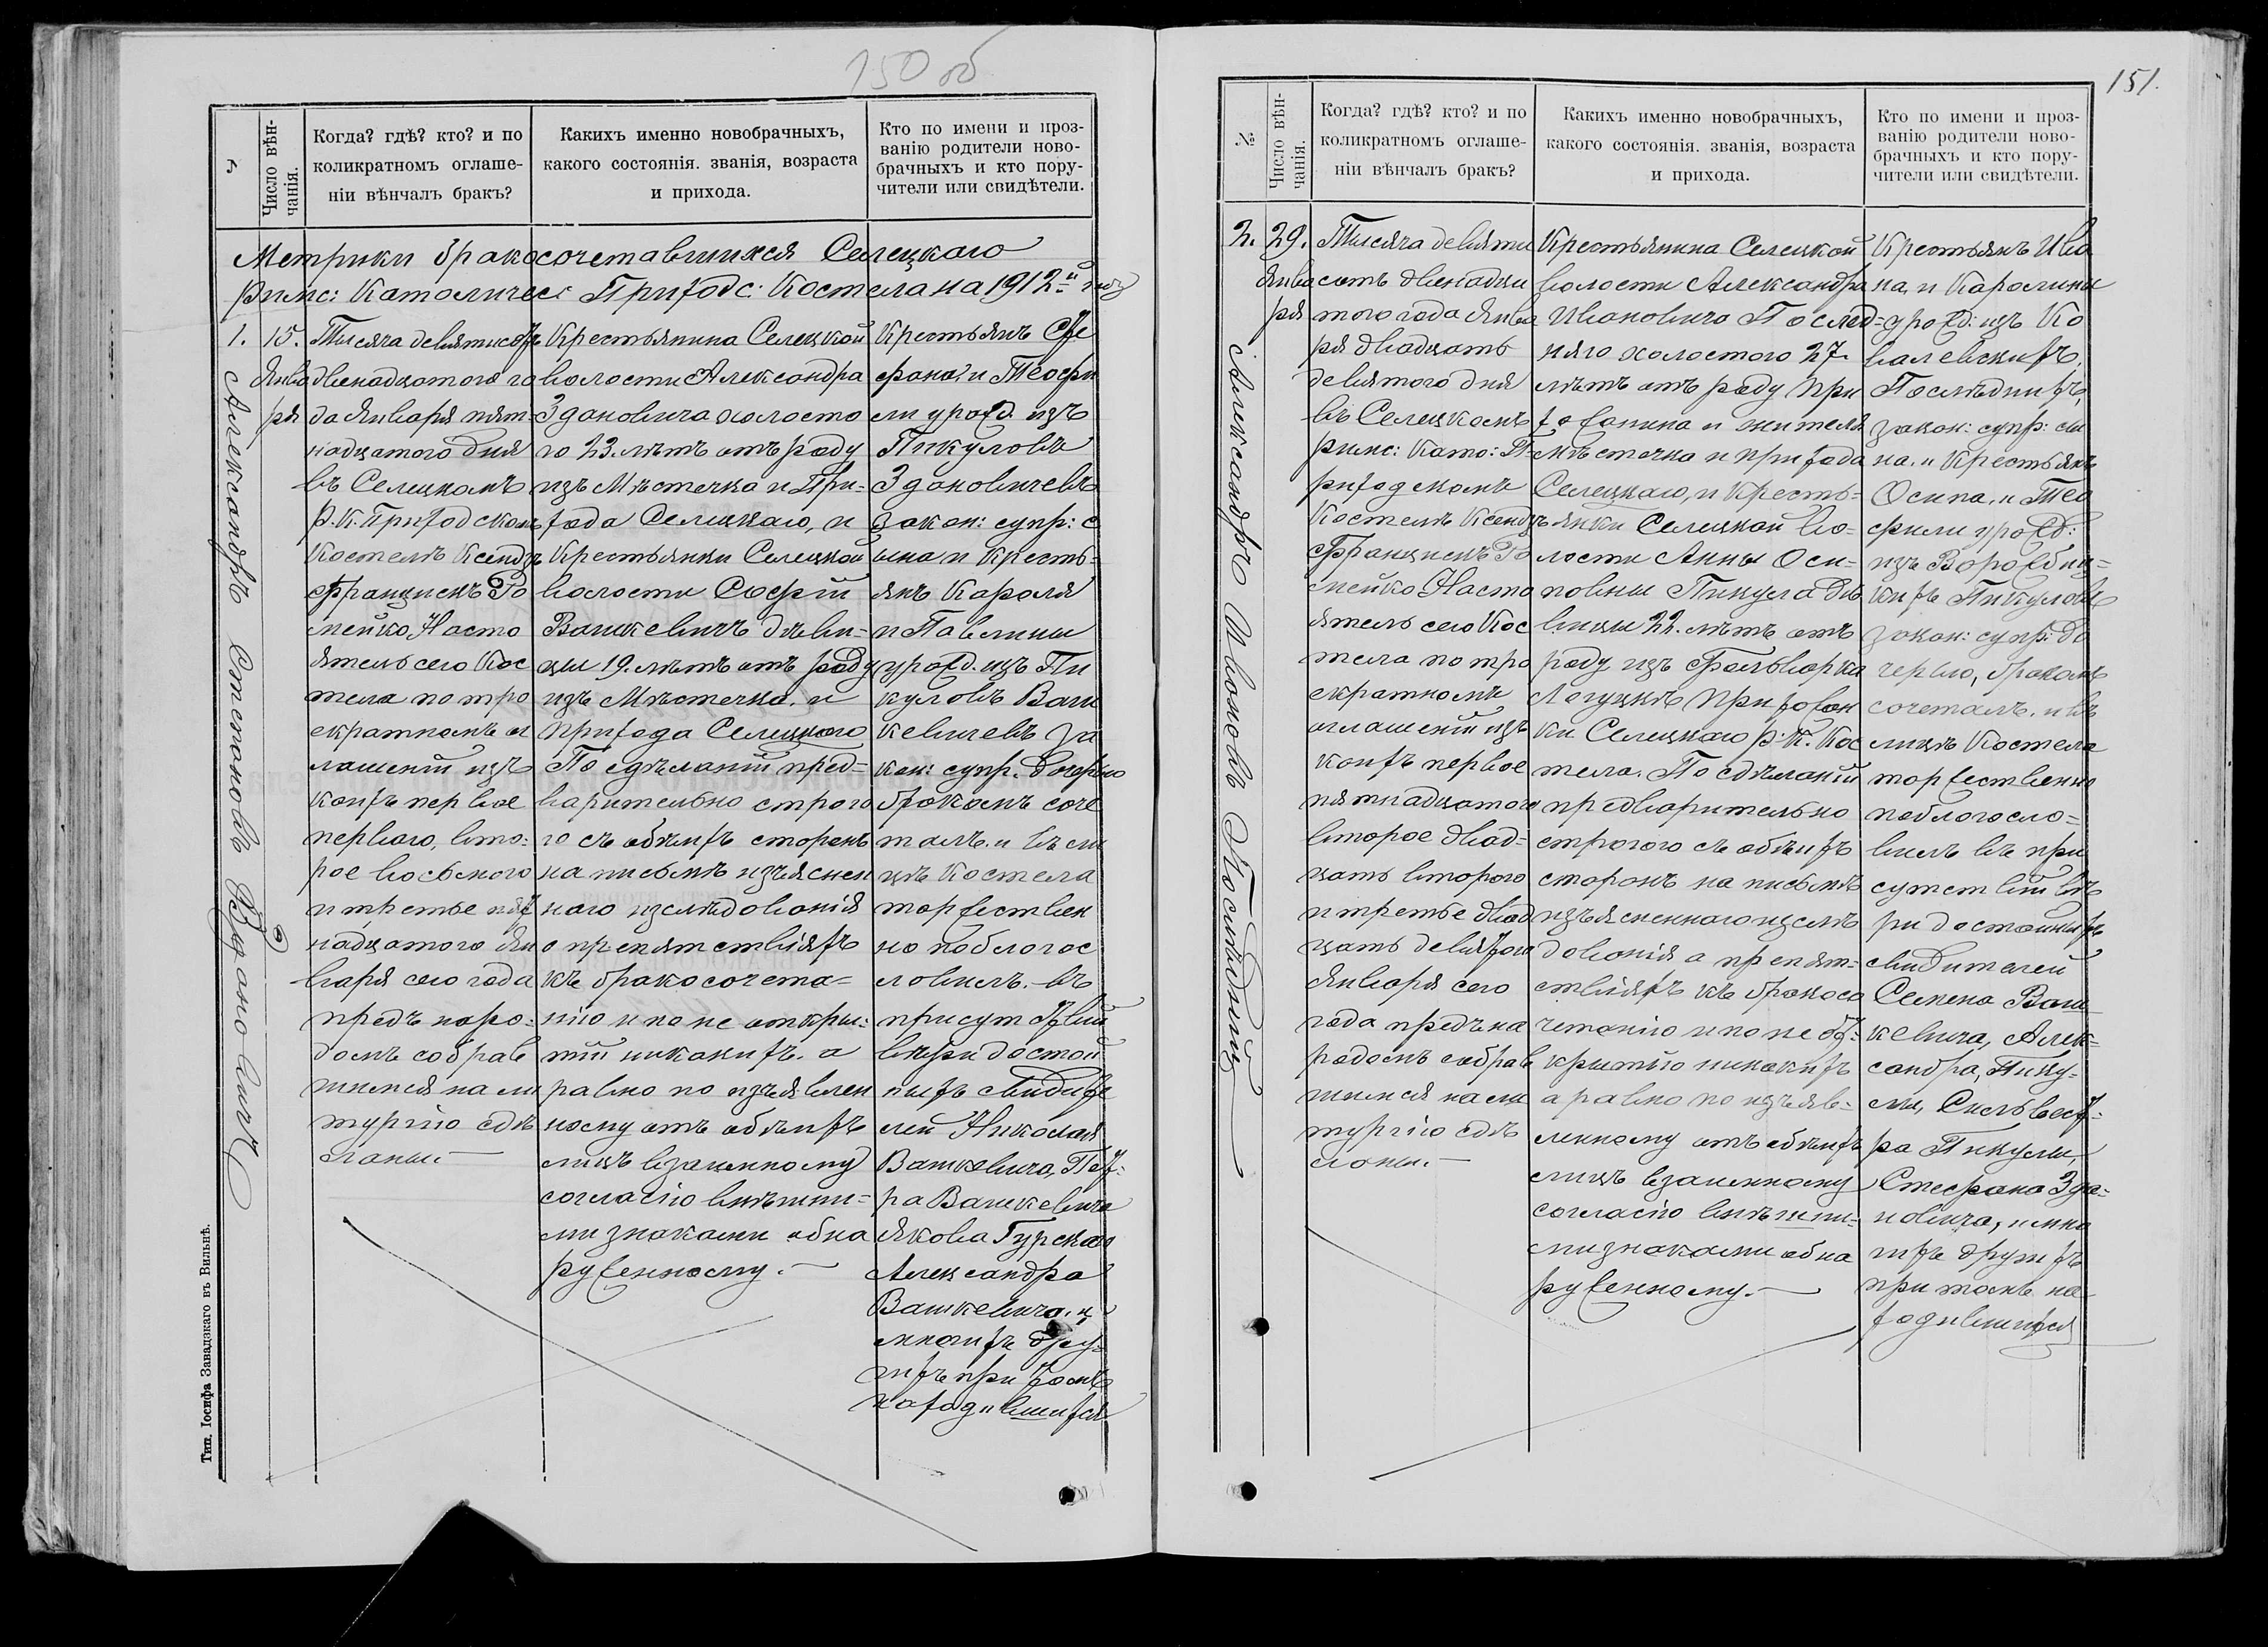 150 об
№
Число вѣн-
чанія.
Когда? гдѣ? кто? и по
коликратномъ оглаше-
ніи вѣнчалъ бракъ?
Какихъ именно новобрачныхъ,
какого состоянія. званія, возраста
и прихода.
Кто по имени и проз-
ванію родители ново-
брачныхъ и кто пору-
чители или свидѣтели.
Метрики бракосочетавшихся Селецкаго
Римс: Католичес: Приходс: Костела на 1912й годъ
1.
15.
Янва
ря
Александръ Стефановъ Здановичъ
Тысяча девятисотъ
двенадцатого го
да Января пят-
надцатого дня
въ Селецкомъ
Р. К. Приходскомъ
Костелѣ Ксендзъ
Францискъ Ро
мейко Насто
ятель сего Кос
тела по тро
екратномъ ог
лашеніи изъ
коихъ первое
первого, вто-
рое восьмого
и третье пят
надцатого Ян
варя сего года
предъ наро-
домъ собрав
шимся на ли
тургію сдѣ
ланы.
Крестьянина Селецкой
волости Александра
Здановича холосто
го 23. лѣтъ отъ роду
изъ Мѣстечка и При-
хода Селецкаго, и
Крестьянки Селецкой
волости Софіи
Вашкевичъ дѣви-
цы 19. лѣтъ отъ роду
изъ Мѣстечка и
прихода Селецкого
По сдѣланіи пред-
варительно строго
го съ обѣихъ сторонъ
на письмѣ изъяснен
наго изслѣдованія
о препятствіяхъ
къ бракосочета-
нію и по не откры-
тіи никакихъ. а
равно по изъявлен
ному отъ обѣихъ
лицъ взаимному
согласію внѣшни-
ми знаками обна
руженному.
Крестьянъ Сте
фана и Теофи
ли урожд. изъ
Пикуловъ
Здановичевъ
закон: супр: с
ына и Кресть-
янъ Кароля
и Павлины
урожд. изъ Пи
куловъ Ваш
кевичевъ за
кон: супр. дочерью
бракомъ соче
талъ. и въ ли
цѣ Костела
торжествен
но поблагос
ловилъ. въ
присутствіи
вѣри достой
ныхъ свидите
лей Николая
Вашкевича, Пет-
ра Вашкевича
Якова Гурскаго
Александра
Вашкевича. и
многихъ дру-
гихъ при томъ
находившихся
Тип. Іосифа Завадзкаго въ Вильнѣ.
151.
№
Число вѣн-
чанія.
Когда? гдѣ? кто? и по
коликратномъ оглаше-
ніи вѣнчалъ бракъ?
Какихъ именно новобрачныхъ,
какого состоянія. званія, возраста
и прихода.
Кто по имени и проз-
ванію родители ново-
брачныхъ и кто пору-
чители или свидѣтели.
2.
29.
Янва
ря
Александръ Ивановъ Послѣдній
Тысяча девяти
сотъ двенадца
того года Янва
ря двадцать
девятого дня
въ Селецкомъ
римс: Като: П-
риходскомъ
Костелѣ Ксендзъ
Францискъ Ро
мейко Насто
ятель сего Кос
тела по тро
екратномъ
оглашеніи изъ
коихъ первое
пятнадцатого
второе двад-
цать второго
и третье двад
цать девятого
Января сего
года предъ на
родомъ собрав
шимся на ли
тургію сдѣ
ланы.
Крестьянина Селецкой
волости Александра
Ивановича Послед-
няго холостого 27
лѣтъ отъ роду При
хожанина и жителя
Мѣстечка и прихода
Селецкаго, и Кресть-
янки Селецкой во-
лости Анны Оси-
повны Пикула дѣ
вицы 22. лѣтъ отъ
роду изъ Фольварка
Логуцкъ прихожан
ки Селецкаго Р. К. Кос
тела. По сдѣланіи
предварительно
строгого съ обѣихъ
сторонъ на письмѣ
изъясненнаго изслѣ
дованія о препят-
ствіяхъ къ бракосо
четанію и по не от-
крытію никакихъ
а равно по изъяв-
ленному отъ обѣихъ
лицъ взаимному
согласію внѣшни-
ми знаками обна
руженному.
Крестьянъ Ива
на, и Каролины
урожд: изъ Ко
валевскихъ
Послѣднихъ,
закон: супр: сы
на. и Крестьянъ
Осипа, и Тео
фили урожд:
изъ Воробиц-
кихъ Пикуловъ
закон: супр: до
черью, бракомъ
сочеталъ. и въ
лицѣ Костела
торжественно
поблагосло-
вилъ въ при
сутствіи вѣ
ри достойныхъ
свидителей
Семена Ваш
кевича, Алек-
сандра, Пику-
лы, Сильвест-
ра Пикулы,
Стефана Зда-
новича, и мно
гихъ другихъ
при томъ на
ходившихся